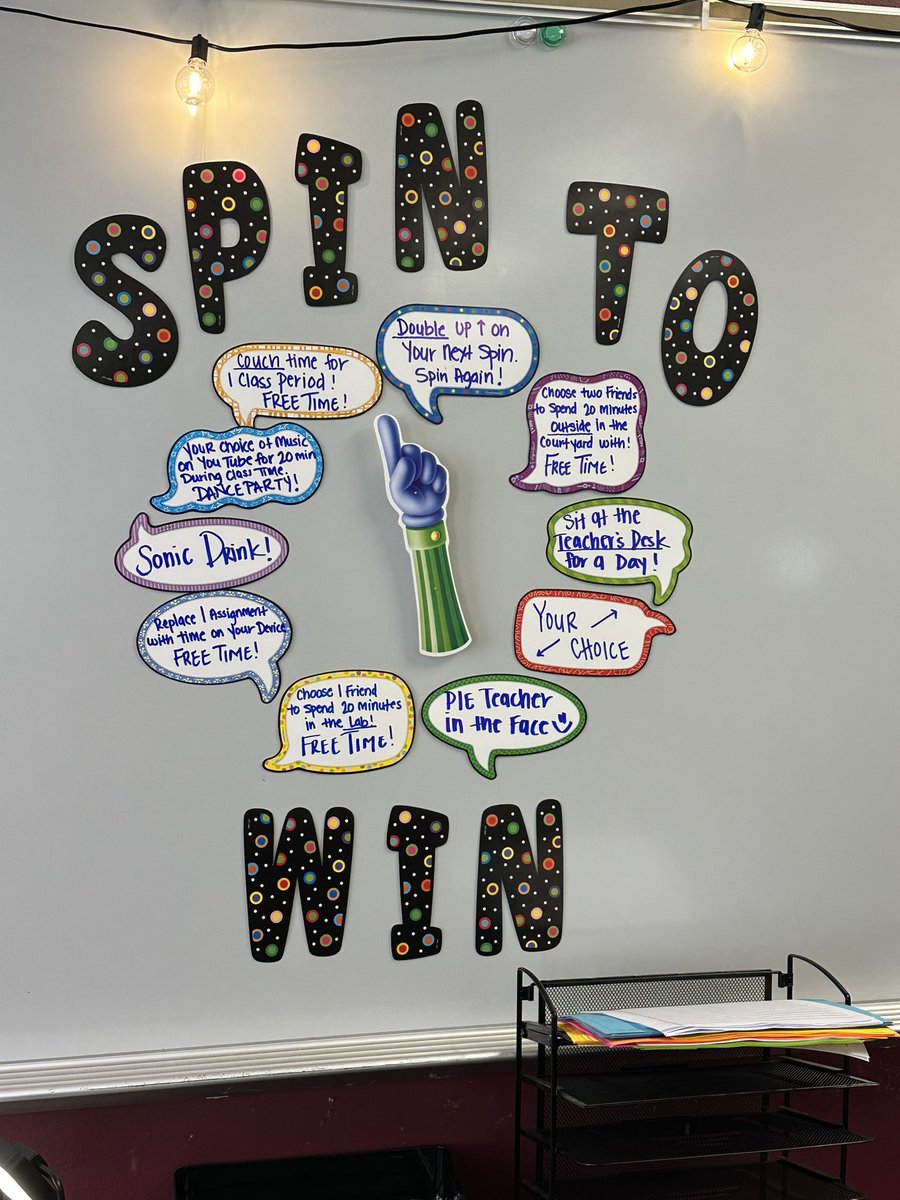 SPIN TO
Double UP ↑ on
Your next Spin.
Spin Again!
Choose two Friends
to Spend 20 minutes
outside in the
Courtyard with!
FREE TIME!
Sit at the
Teacher's Desk
for a Day!
YOUR ↗
↙ CHOICE
PIE Teacher
in the Face
Choose 1 Friend
to Spend 20 Minutes
in the Lab!
FREE TIME!
Replace 1 Assignment
with time on Your Device
FREE TIME!
Sonic Drink!
YOUR choice of Music
on You Tube for 20 min
During Class Time.
DANCE PARTY!
Couch time for
1 Class Period!
FREE TIME!
WIN